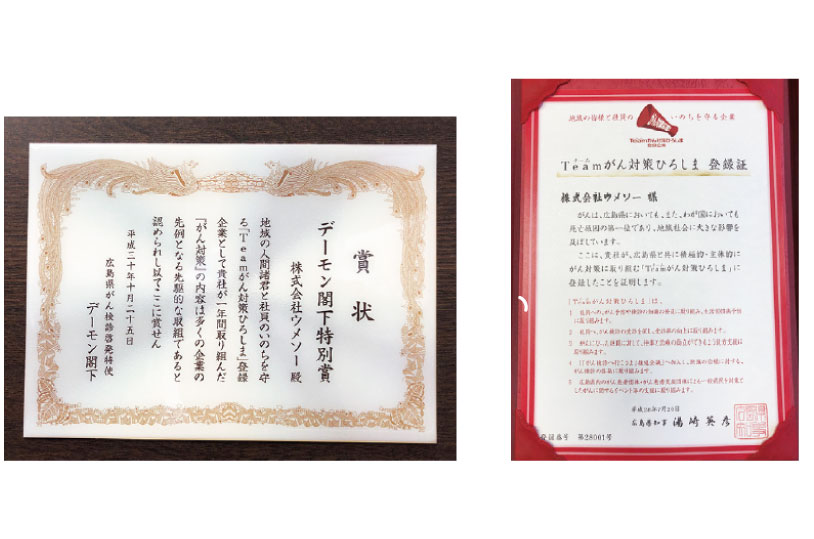 賞状
デーモン閣下特別賞
株式会社ウメソー 殿
地域の人間諸君と社員のいのちを守
る『Teamがん対策ひろしま』登録
企業として貴社が一年間取り組んだ
『がん対策』の内容は多くの企業の
先例となる先駆的な取組であると
認められし以てここに賞せん
平成二十年十月二十五日
広島県がん検診啓発特使
デーモン閣下
地域の皆様と従業員の
いのちを守る企業
Teamがん対策ひろしま
登録企業
Teamがん対策ひろしま 登録証
チーム
株式会社ウメソー 様
がんは、広島県においても、また、わが国においても
死亡原因の第一位であり、地域社会に大きな影響を
及ぼしています。
ここに、貴社が、広島県と共に積極的・主体的に
がん対策に取り組む「Teamがん対策ひろしま」に
登録したことを証明します。
「Teamがん対策ひろしま」は、
1
取り組みます。
2 社員へがん検診の受診を促し、受診率の向上に取り組みます。
3
取り組みます。
4
がん検診の普及に取り組みます。
5
平成28年7月25日
広島県知事 湯﨑英彦
登録番号 第28001号